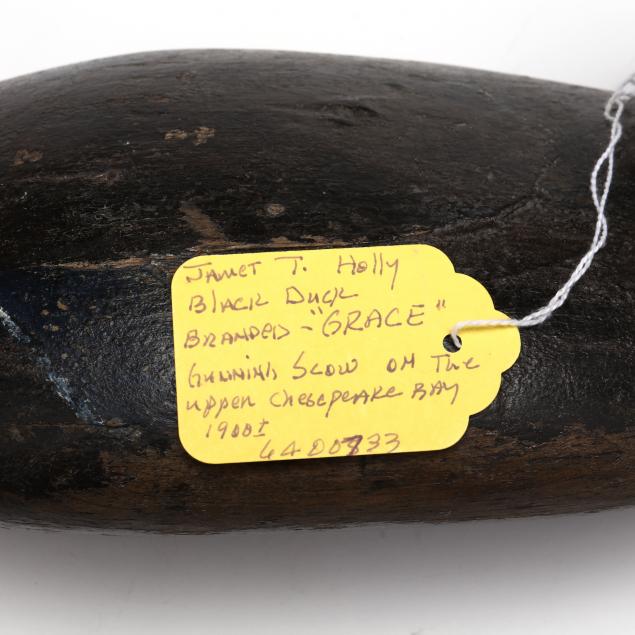 James T. Holly
Black Duck
Branded - "GRACE"
Gunning Scow on The
upper Chesepeake BAY
1900±
6400733